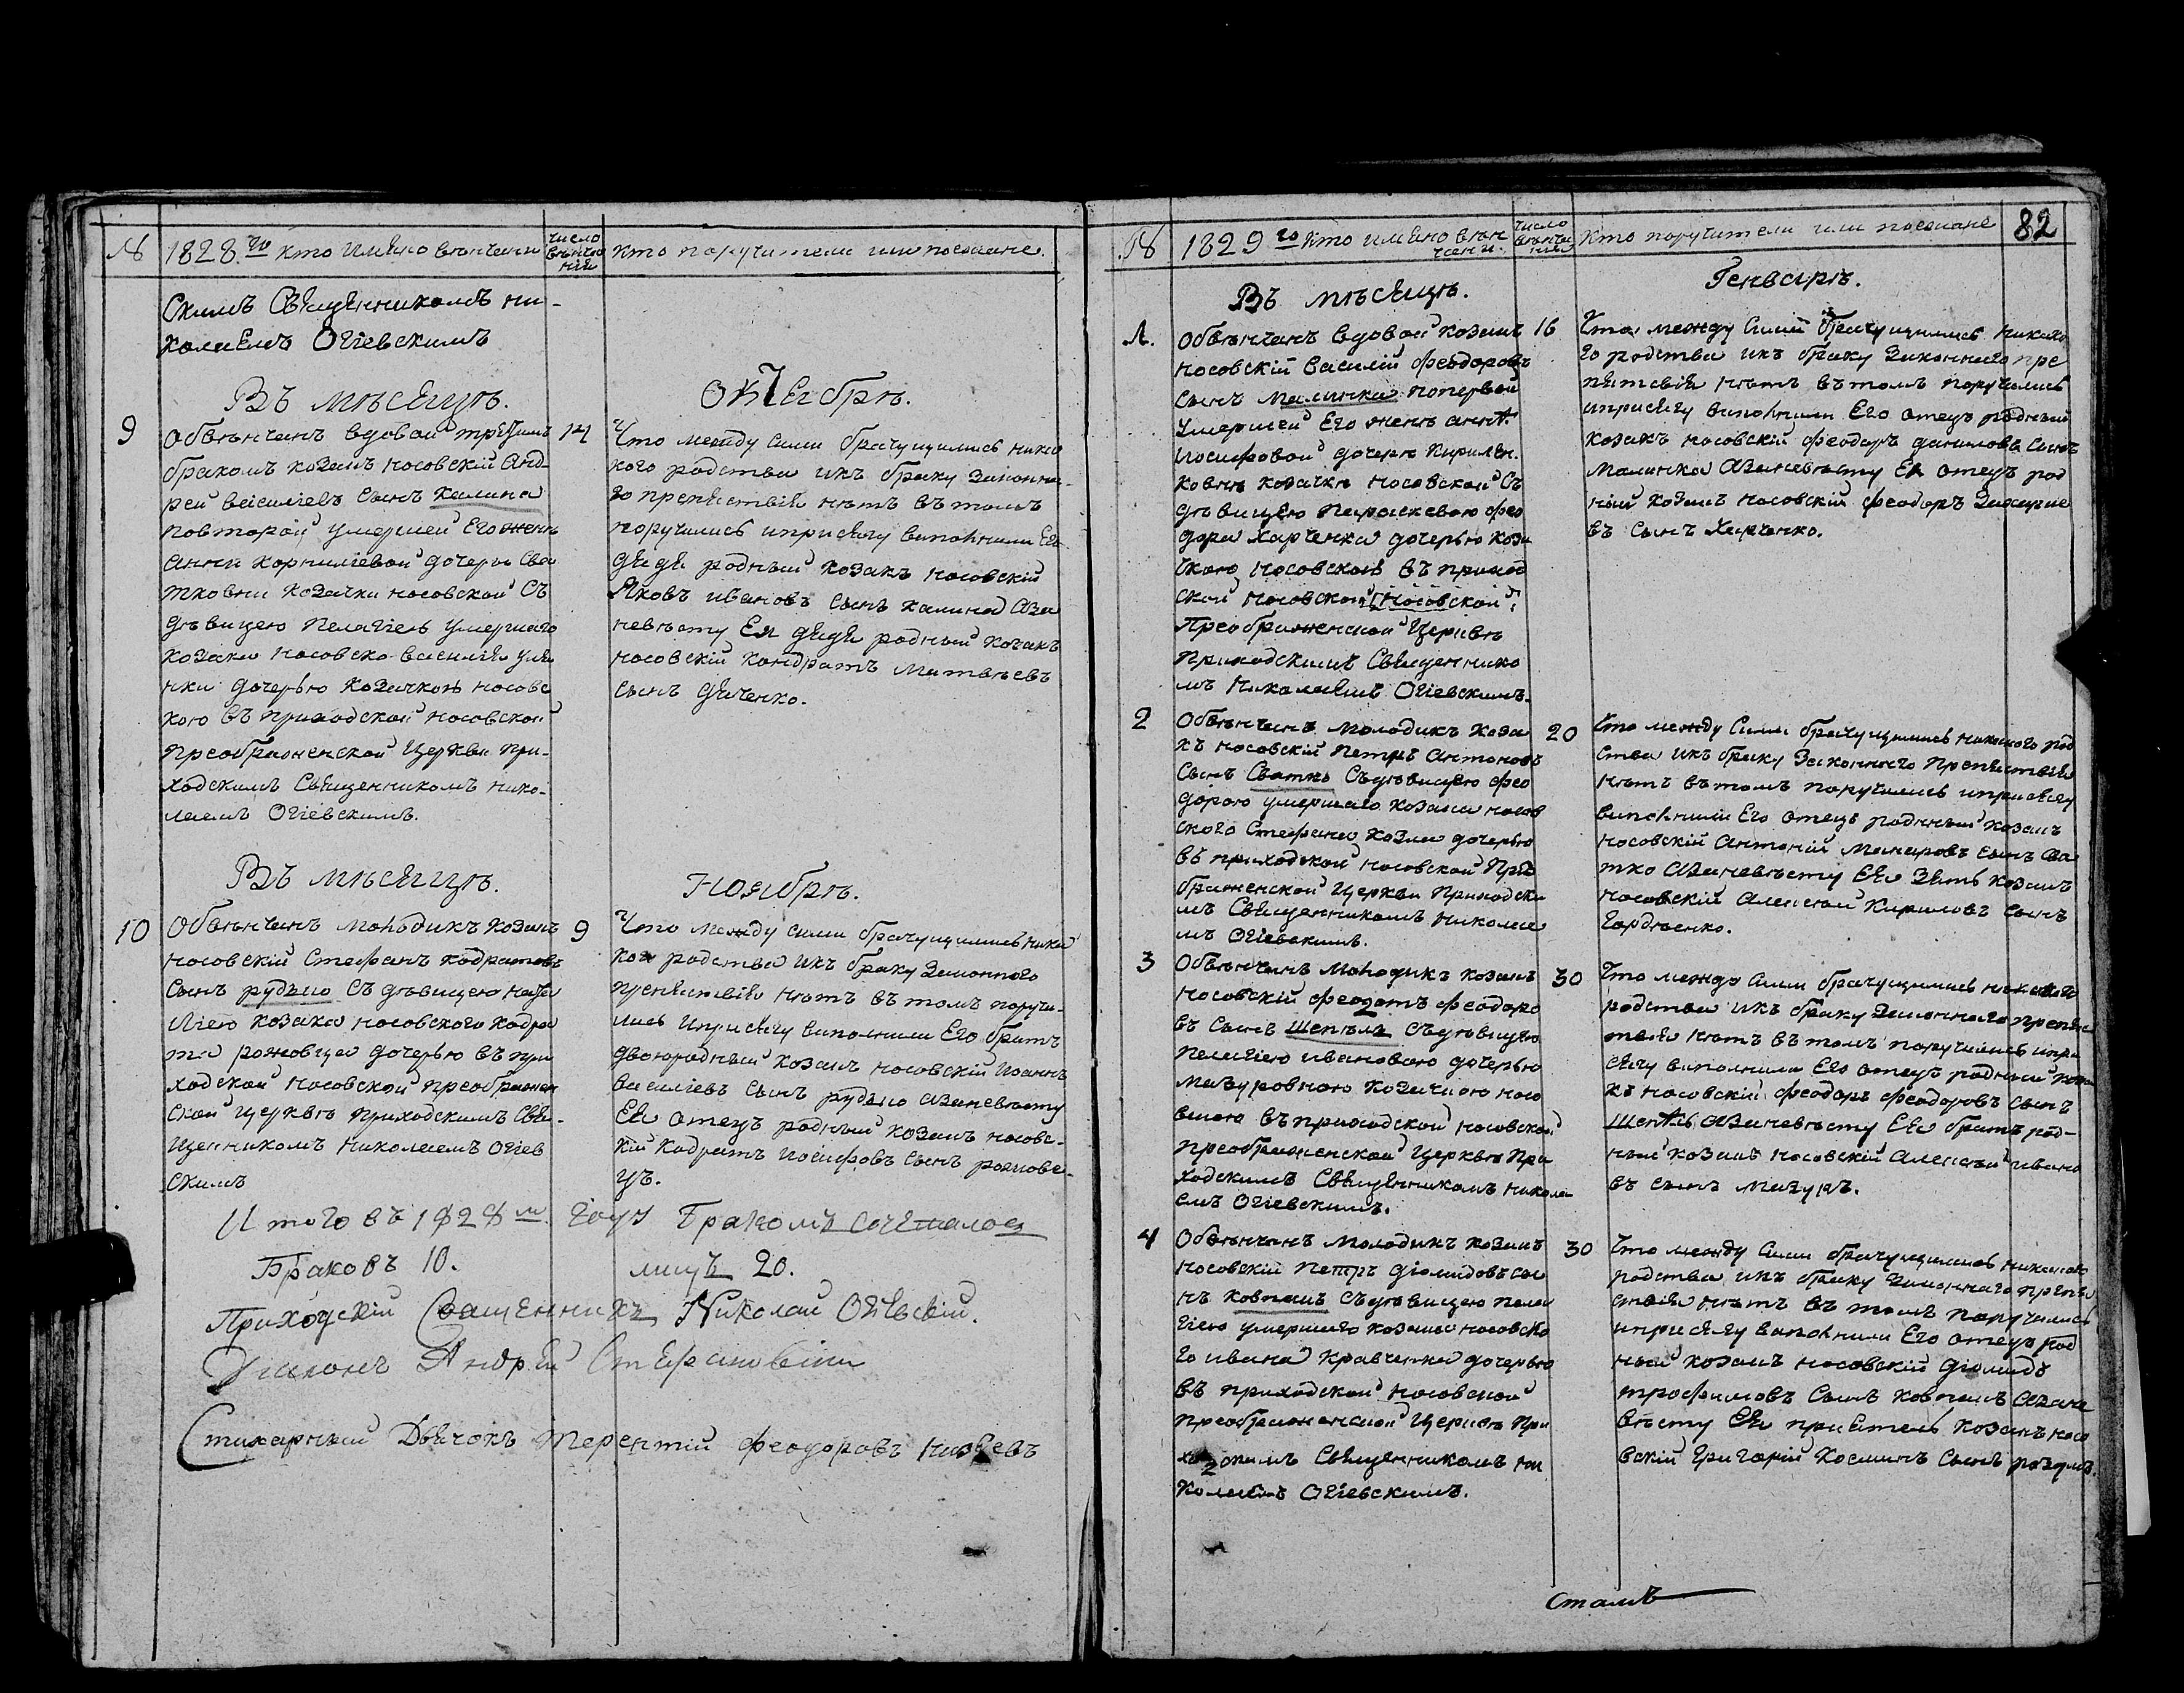 № 1828.го кто имѣно вѣнчани
число вѣнчания
кто поручители или поезжане.
скимъ Свѣщенникомъ ни-
колаемъ Огіевскимъ
Въ мѣсяцѣ.
Октябрѣ.
9
Обвѣнчанъ вдовой третимъ
бракомъ козакъ носовскій Анд-
рей василіевъ сынъ Калина
повторой умершей Его женѣ
Анни Корниліевой дочери Сва
тковни козачки носовской Съ
дѣвицею Пелагіею умершаго
козака носовско василія уля
нки дочерью козачкою носовс
кою въ приходской носовской
преображенской Церкви при-
ходскимъ Свѣщенникомъ нико-
лаемъ Огіевскимъ.
14
Что между сими брачущимись ника
кого родства икъ браку законна-
го препяствія нѣтъ въ томъ
поручились иприсягу виполнили Его
дядя родный козакъ носовскій
Яковъ ивановъ сынъ калина Аза
невѣсту Ея дядя родный козакъ
носовскій Кондратъ Матвѣевъ
сынъ дяченко.
Въ мѣсяцѣ.
Ноябрѣ.
10
Обвѣнчанъ молодикъ козакъ
носовскій Стефанъ кодратовъ
сынъ рудько съ дѣвицею ната
лією козака носовского кодра
та рожовца дочерью въ при
ходской носовской преображен
ской церквѣ приходскимъ свѣ-
щенникомъ николаемъ огіев
скимъ
9
Что между сими брачущимись ника
кого родства икъ браку законного
препяствія нѣтъ въ томъ поручи-
лись иприсягу виполнили Его братъ
двоюродный козакъ носовскій Иоаннъ
василіевъ сынъ рудько азаневѣсту
Ея отецъ родный козакъ носовс-
кій кодратъ иосифовъ сынъ рожове-
цъ.
Итого въ 1828м. году Бракомъ сочеталося
Браковъ 10.
лицъ 20.
Приходскій Священникъ Николай Огіевскій.
Диаконъ Андрей Стефановичъ
Стихарный Дьячокъ Терентій Феодоровъ
№ 1829го кто имѣно вѣн
чани.
число вѣнчания
Кто поручители или поезжане
82
Въ мѣсяцѣ.
Генварѣ.
1.
Обвѣнчанъ вдовой козакъ
носовскій василій феодоровъ
сынъ Малинка поперьвой
умершей Его женѣ аннѣ
иосифовой дочери Кирилен-
ковнѣ козачкѣ носовской Съ
дѣвицею Параскевою фео
дора харченка дочерью коза
чкою носовскою въ приход
ской носовской носовской
Преображенской Церквѣ
приходскимъ Свѣщеннико
мъ Николаемъ Огіевскимъ.
16
Что между сими брачущимись никако
го родства икъ браку законнаго пре
пятсвія нѣтъ въ томъ поручились
иприсягу виполнили Его отецъ родный
козакъ носовскій феодоръ даниловъ сынъ
Малинка Азаневѣсту Ея отецъ род
ный козакъ носовскій феодоръ Захарие
въ сынъ Харченко.
2
Обвѣнчанъ молодикъ коза
къ носовскій Петръ Антоновъ
сынъ Сватко Съдѣвицею фео
дорою умершаго козака носов
ского Стефана козла дочерью
въ приходской носовской Прео
браженской Церкви Приходски
мъ Свѣщенникомъ николае
мъ Огіевскимъ.
20
Что между Сими брачущимись никакого род
ства икъ браку Законного Препяствія
нѣтъ въ томъ поручились иприсягу
виполнили Его отецъ родный козакъ
носовскій Антоній Макаровъ сынъ Сва
тко Азаневѣсту Ея Зять козакъ
носовскій Алексѣй Кириловъ сынъ
Гордѣенко.
3
Обвѣнчанъ Молодикъ козакъ
носовскій феодотъ феодоро
въ сынъ Шепѣль Съдѣвицею
пелагіею ивановою дочерью
мазуровною козачкою носо
вкою въприходской носовской
преображенской Церквѣ При
ходскимъ Свѣщенникомъ никола
емъ Огіевскимъ.
30
Что между сими брачущимись никакого
родства икъ браку Законнаго препяс
твія нѣтъ въ томъ поручились ипри
сягу виполнили Его отецъ родный коза
къ носовскій феодоръ феодоровъ сынъ
Шепѣль Азаневѣсту Ея братъ род-
ный козакъ носовскій Алексѣй ивано
въ сынъ Мазуръ.
4
Обвѣнчанъ молодикъ козакъ
носовскій Петръ діомидовъ сы
нъ ковпакъ съдѣвицею пела
гіею умершего козака носовско
го ивана Кравченка дочерью
въ приходской носовской
преображенской Церквѣ При
ходскимъ Свѣщенникомъ ни
колаемъ Огіевскимъ.
30
Что между сими брачущимись никакого
родства икъ браку Законнаго препя
ствія нѣтъ въ томъ поручились
иприсягу виполнили Его отецъ род
ный козакъ носовскій діомидъ
трофимовъ сынъ ковпакъ Азане
вѣсту Ея приятель козакъ носо
вскій Григорій Косминъ сынъ